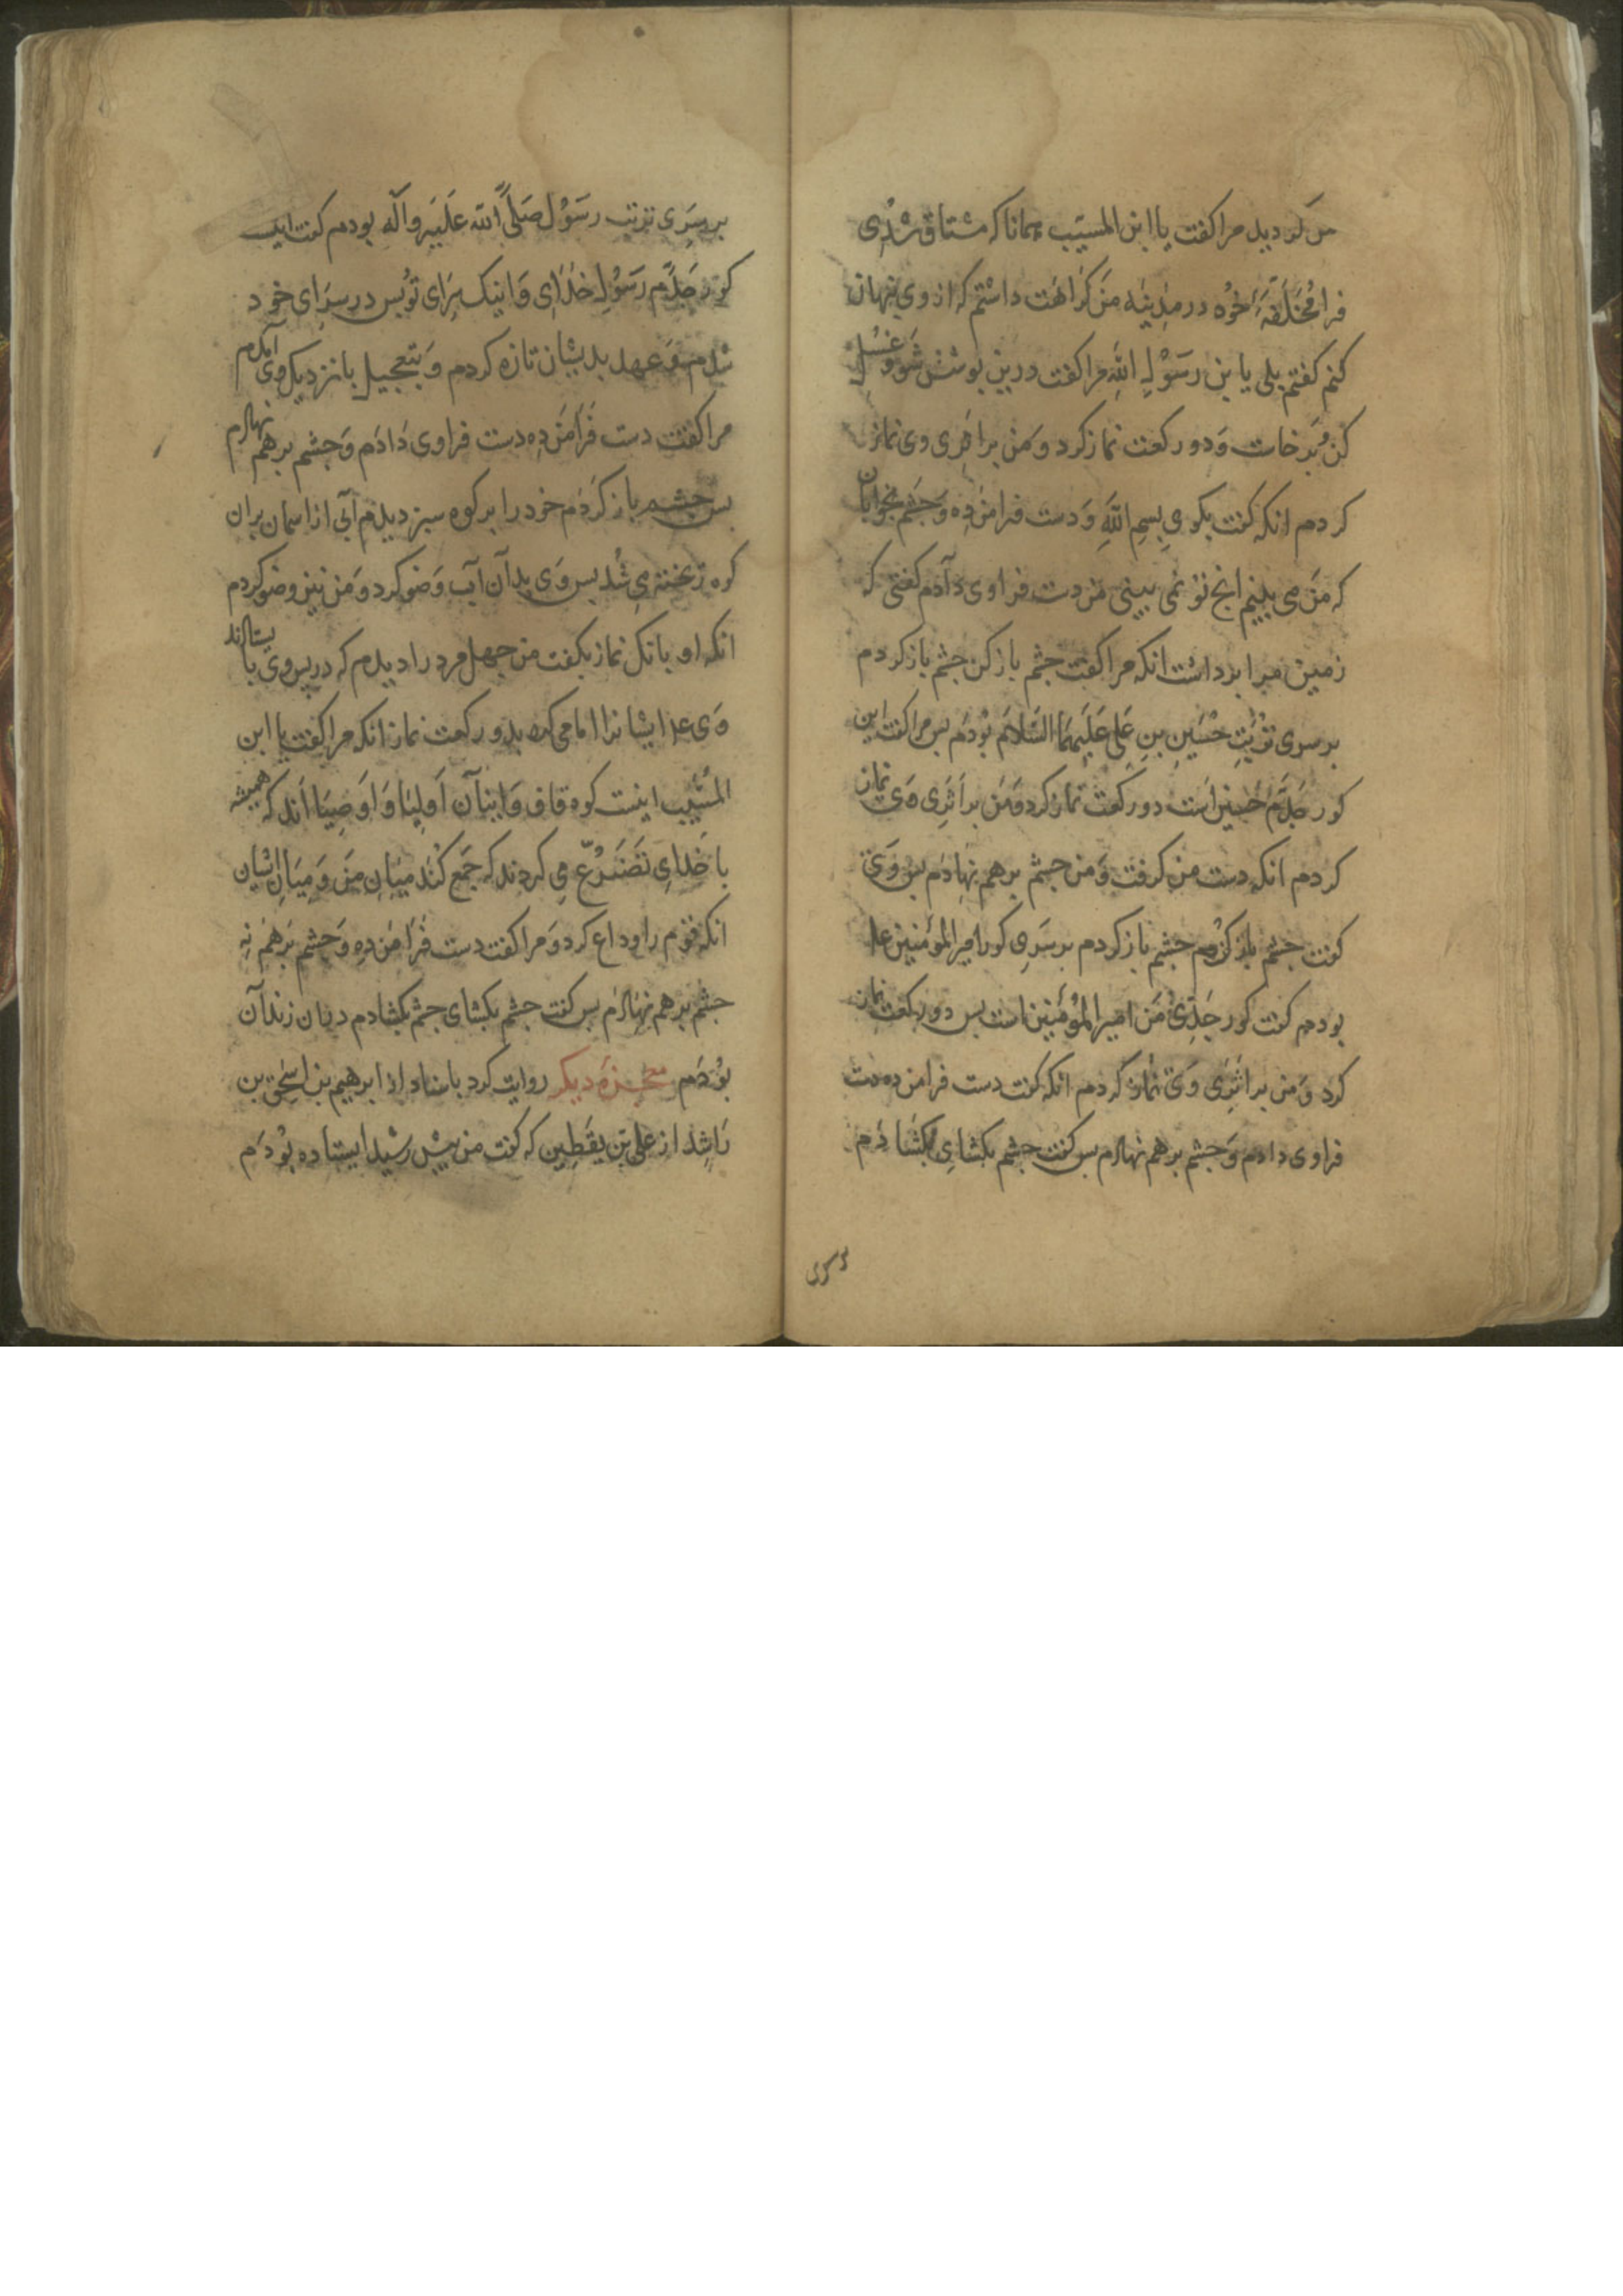 من کرد دید مرا کفت یا ابن المسیّب همانا که مشتاق شدی
فرا مُخَلَّفَهٔ خود در مدینه من کراهت داشتم که از وی پنهان
کنم کفتم بلی یا بن رسول الله مرا کفت درین پوشش شو و غسل
کن و برخاست و دو رکعت نماز کرد و من بر اثری وی نماز
کردم انکه کفت بکوی بسم الله و دست فرا من ده و چشم بخوابان
که من می بینم انچ تو نمی بینی من دست فرا وی دادم کفتی که
زمین مرا برداشت انکه مرا کفت چشم باز کن چشم باز کردم
بر سری تربت حسین بن علی علیهما السلام بودم بس مرا کفت این
کور جدّم حسین است دو رکعت نماز کرد و من بر اثری وی نماز
کردم انکه دست من کرفت و من چشم برهم نهادم بس وی
کفت چشم باز کن چشم باز کردم بر سری کور امیر المؤمنین ع
بودم کفت کور جدّی من امیر المؤمنین است بس دو رکعت نماز
کرد و من بر اثری وی نماز کردم انکه کفت دست فرا من ده دست
فرا وی دادم و چشم برهم نهادم بس کفت چشم بکشای بکشادم
بر سری
بر سری تربت رسول صلّی الله علیه وآله بودم کفت این
کور جدّم رسول خدای و اینک سرای تو بس در سرای خود
شدم و عهد بدیشان تازه کردم و بتعجیل با نزدیک وی آمدم
مرا کفت دست فرا من ده دست فرا وی دادم و چشم برهم نهادم
بس چشم باز کردم خود را بر کوه سبز دیدم آبی از اسمان بران
کوه ریخته می شد بس وی بدان آب وضو کرد و من نیز وضو کردم
انکه او بانک نماز بکفت من چهل مرد را دیدم که در پس وی بایستادند
وی ع ایشانرا امامی کرد بدو رکعت نماز انکه مرا کفت یا ابن
المسیّب اینست کوه قاف و اینان اولیا و اوصیا اند که همیشه
با خدای تضرّع می کردند که جمع کند میان من و میان ایشان
انکه قوم را وداع کرد و مرا کفت دست فرا من ده و چشم برهم نه
چشم برهم نهادم بس کفت چشم بکشای چشم بکشادم در میان زندان
بودم معجزهٔ دیکر روایت کرد باسناد از ابرهیم بن اسحق بن
راشد از علی بن یقطین که کفت من پیش رشید ایستاده بودم